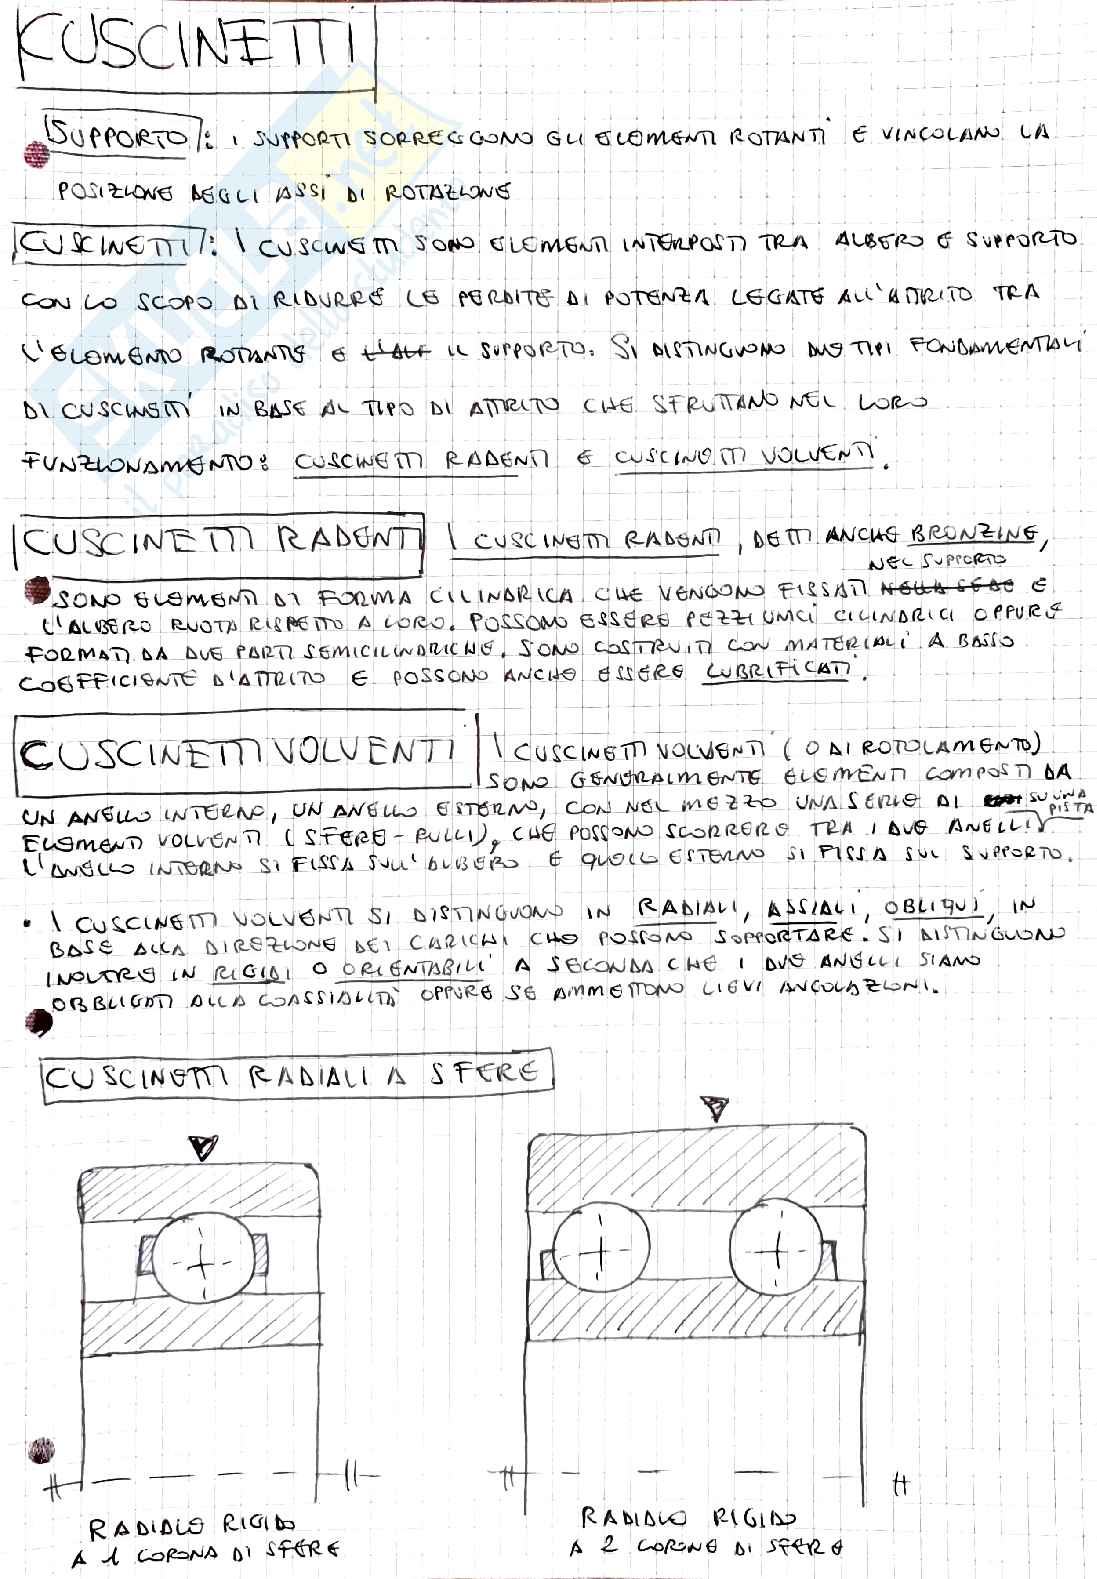 CUSCINETTI
SUPPORTO: I SUPPORTI SORREGGONO GLI ELEMENTI ROTANTI E VINCOLANO LA
POSIZIONE DEGLI ASSI DI ROTAZIONE
CUSCINETTI: I CUSCINETTI SONO ELEMENTI INTERPOSTI TRA ALBERO E SUPPORTO
CON LO SCOPO DI RIDURRE LE PERDITE DI POTENZA LEGATE ALL'ATTRITO TRA
L'ELEMENTO ROTANTE E IL SUPPORTO. SI DISTINGUONO DUE TIPI FONDAMENTALI
DI CUSCINETTI IN BASE AL TIPO DI ATTRITO CHE SFRUTTANO NEL LORO
FUNZIONAMENTO: CUSCINETTI RADENTI E CUSCINETTI VOLVENTI.
CUSCINETTI RADENTI I CUSCINETTI RADENTI, DETTI ANCHE BRONZINE,
NEL SUPPORTO
SONO ELEMENTI DI FORMA CILINDRICA CHE VENGONO FISSATI NELLA SEDE E
L'ALBERO RUOTA RISPETTO A LORO. POSSONO ESSERE PEZZI UNICI CILINDRICI OPPURE
FORMATI DA DUE PARTI SEMICILINDRICHE. SONO COSTRUITI CON MATERIALI A BASSO
COEFFICIENTE D'ATTRITO E POSSONO ANCHE ESSERE LUBRIFICATI.
CUSCINETTI VOLVENTI I CUSCINETTI VOLVENTI (O DI ROTOLAMENTO)
SONO GENERALMENTE ELEMENTI COMPOSTI DA
UN ANELLO INTERNO, UN ANELLO ESTERNO, CON NEL MEZZO UNA SERIE DI
SU UNA PISTA
ELEMENTI VOLVENTI (SFERE-RULLI), CHE POSSONO SCORRERE TRA I DUE ANELLI
L'ANELLO INTERNO SI FISSA SULL'ALBERO E QUELLO ESTERNO SI FISSA SUL SUPPORTO.
• I CUSCINETTI VOLVENTI SI DISTINGUONO IN RADIALI, ASSIALI, OBLIQUI, IN
BASE ALLA DIREZIONE DEI CARICHI CHE POSSONO SUPPORTARE. SI DISTINGUONO
INOLTRE IN RIGIDI O ORIENTABILI A SECONDA CHE I DUE ANELLI SIANO
OBBLIGATI ALLA COASSIALITÀ OPPURE SE AMMETTONO LIEVI ANGOLAZIONI.
CUSCINETTI RADIALI A SFERE
RADIALE RIGIDO
A 1 CORONA DI SFERE
RADIALE RIGIDO
A 2 CORONE DI SFERE
SKUOLA.net
il paradiso dello studente